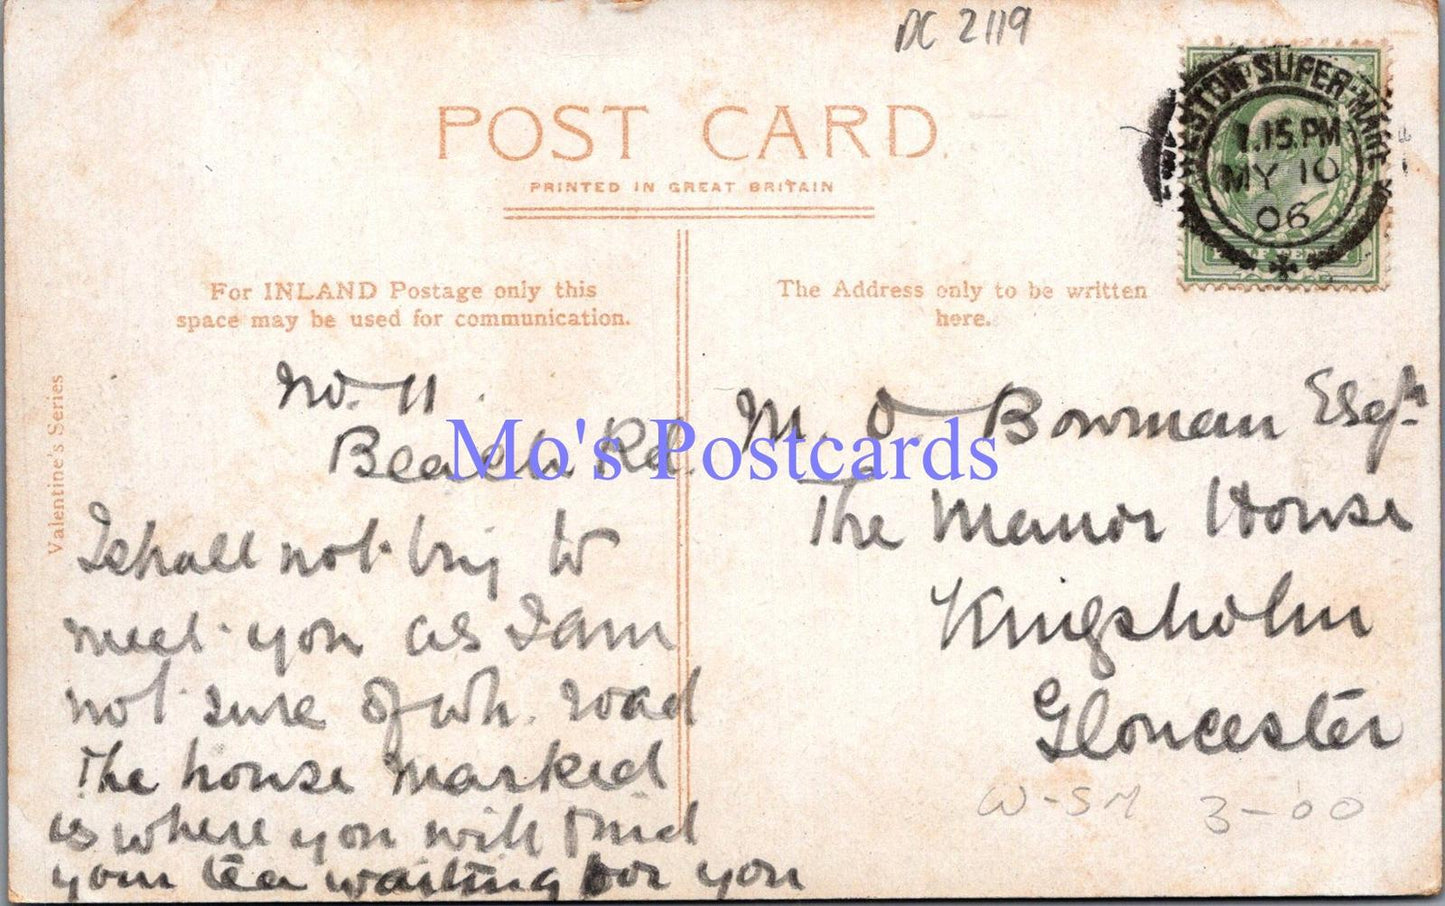 DC 2119
POST CARD.
PRINTED IN GREAT BRITAIN
WESTON-SUPER-MARE
1.15.PM
MY 10
06
For INLAND Postage only this
space may be used for communication.
The Address only to be written
here.
Valentine's Series
No. 11.
Beach Rd
I shall not try to
meet you as I am
not sure of wh. road
The house marked
is where you will find
your tea waiting for you
M. O Bowman Esqr.
The Manor House
Kingsholm
Gloucester
W-SM 3-00
Mo's Postcards